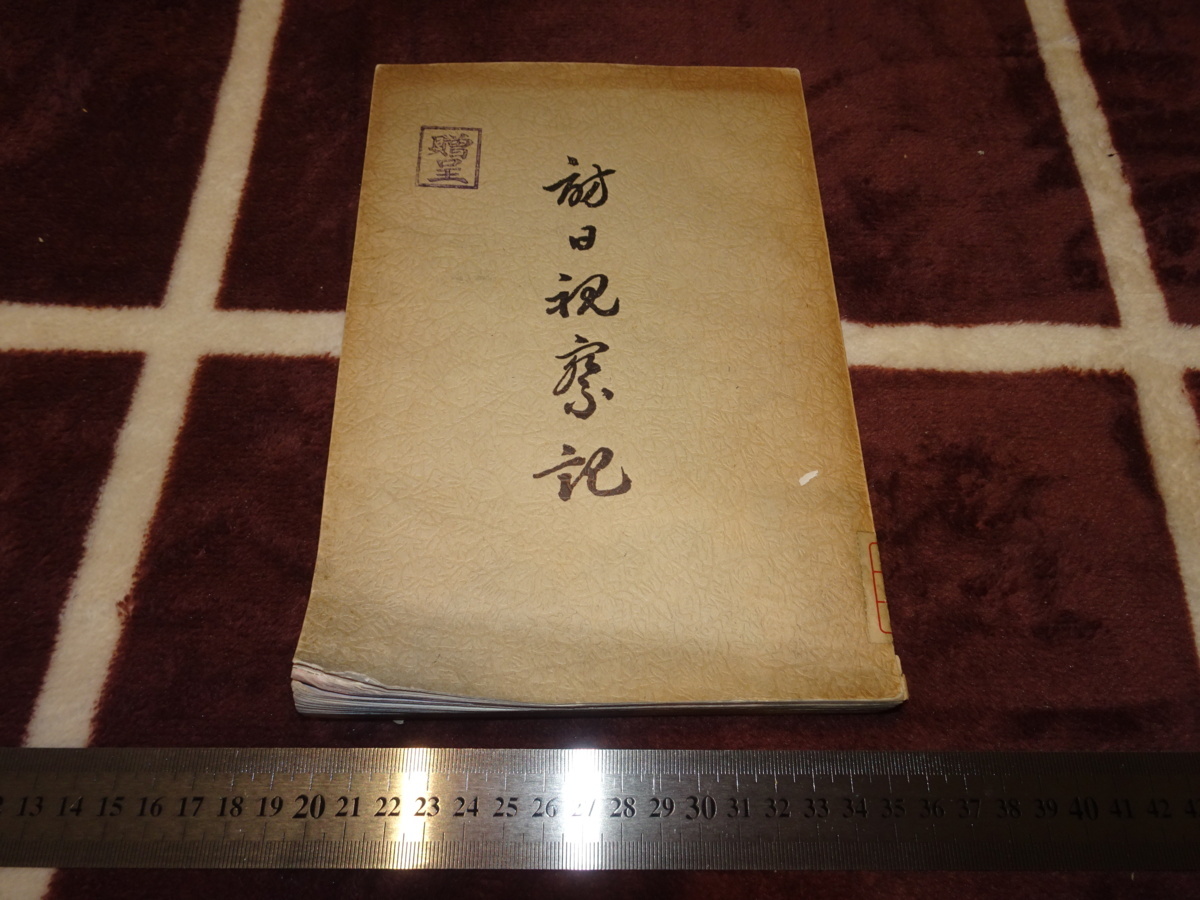 贈呈
訪日視察記
13 14 15 16 17 18 19 20 21 22 23 24 25 26 27 28 29 30 31 32 33 34 35 36 37 38 39 40 41 42